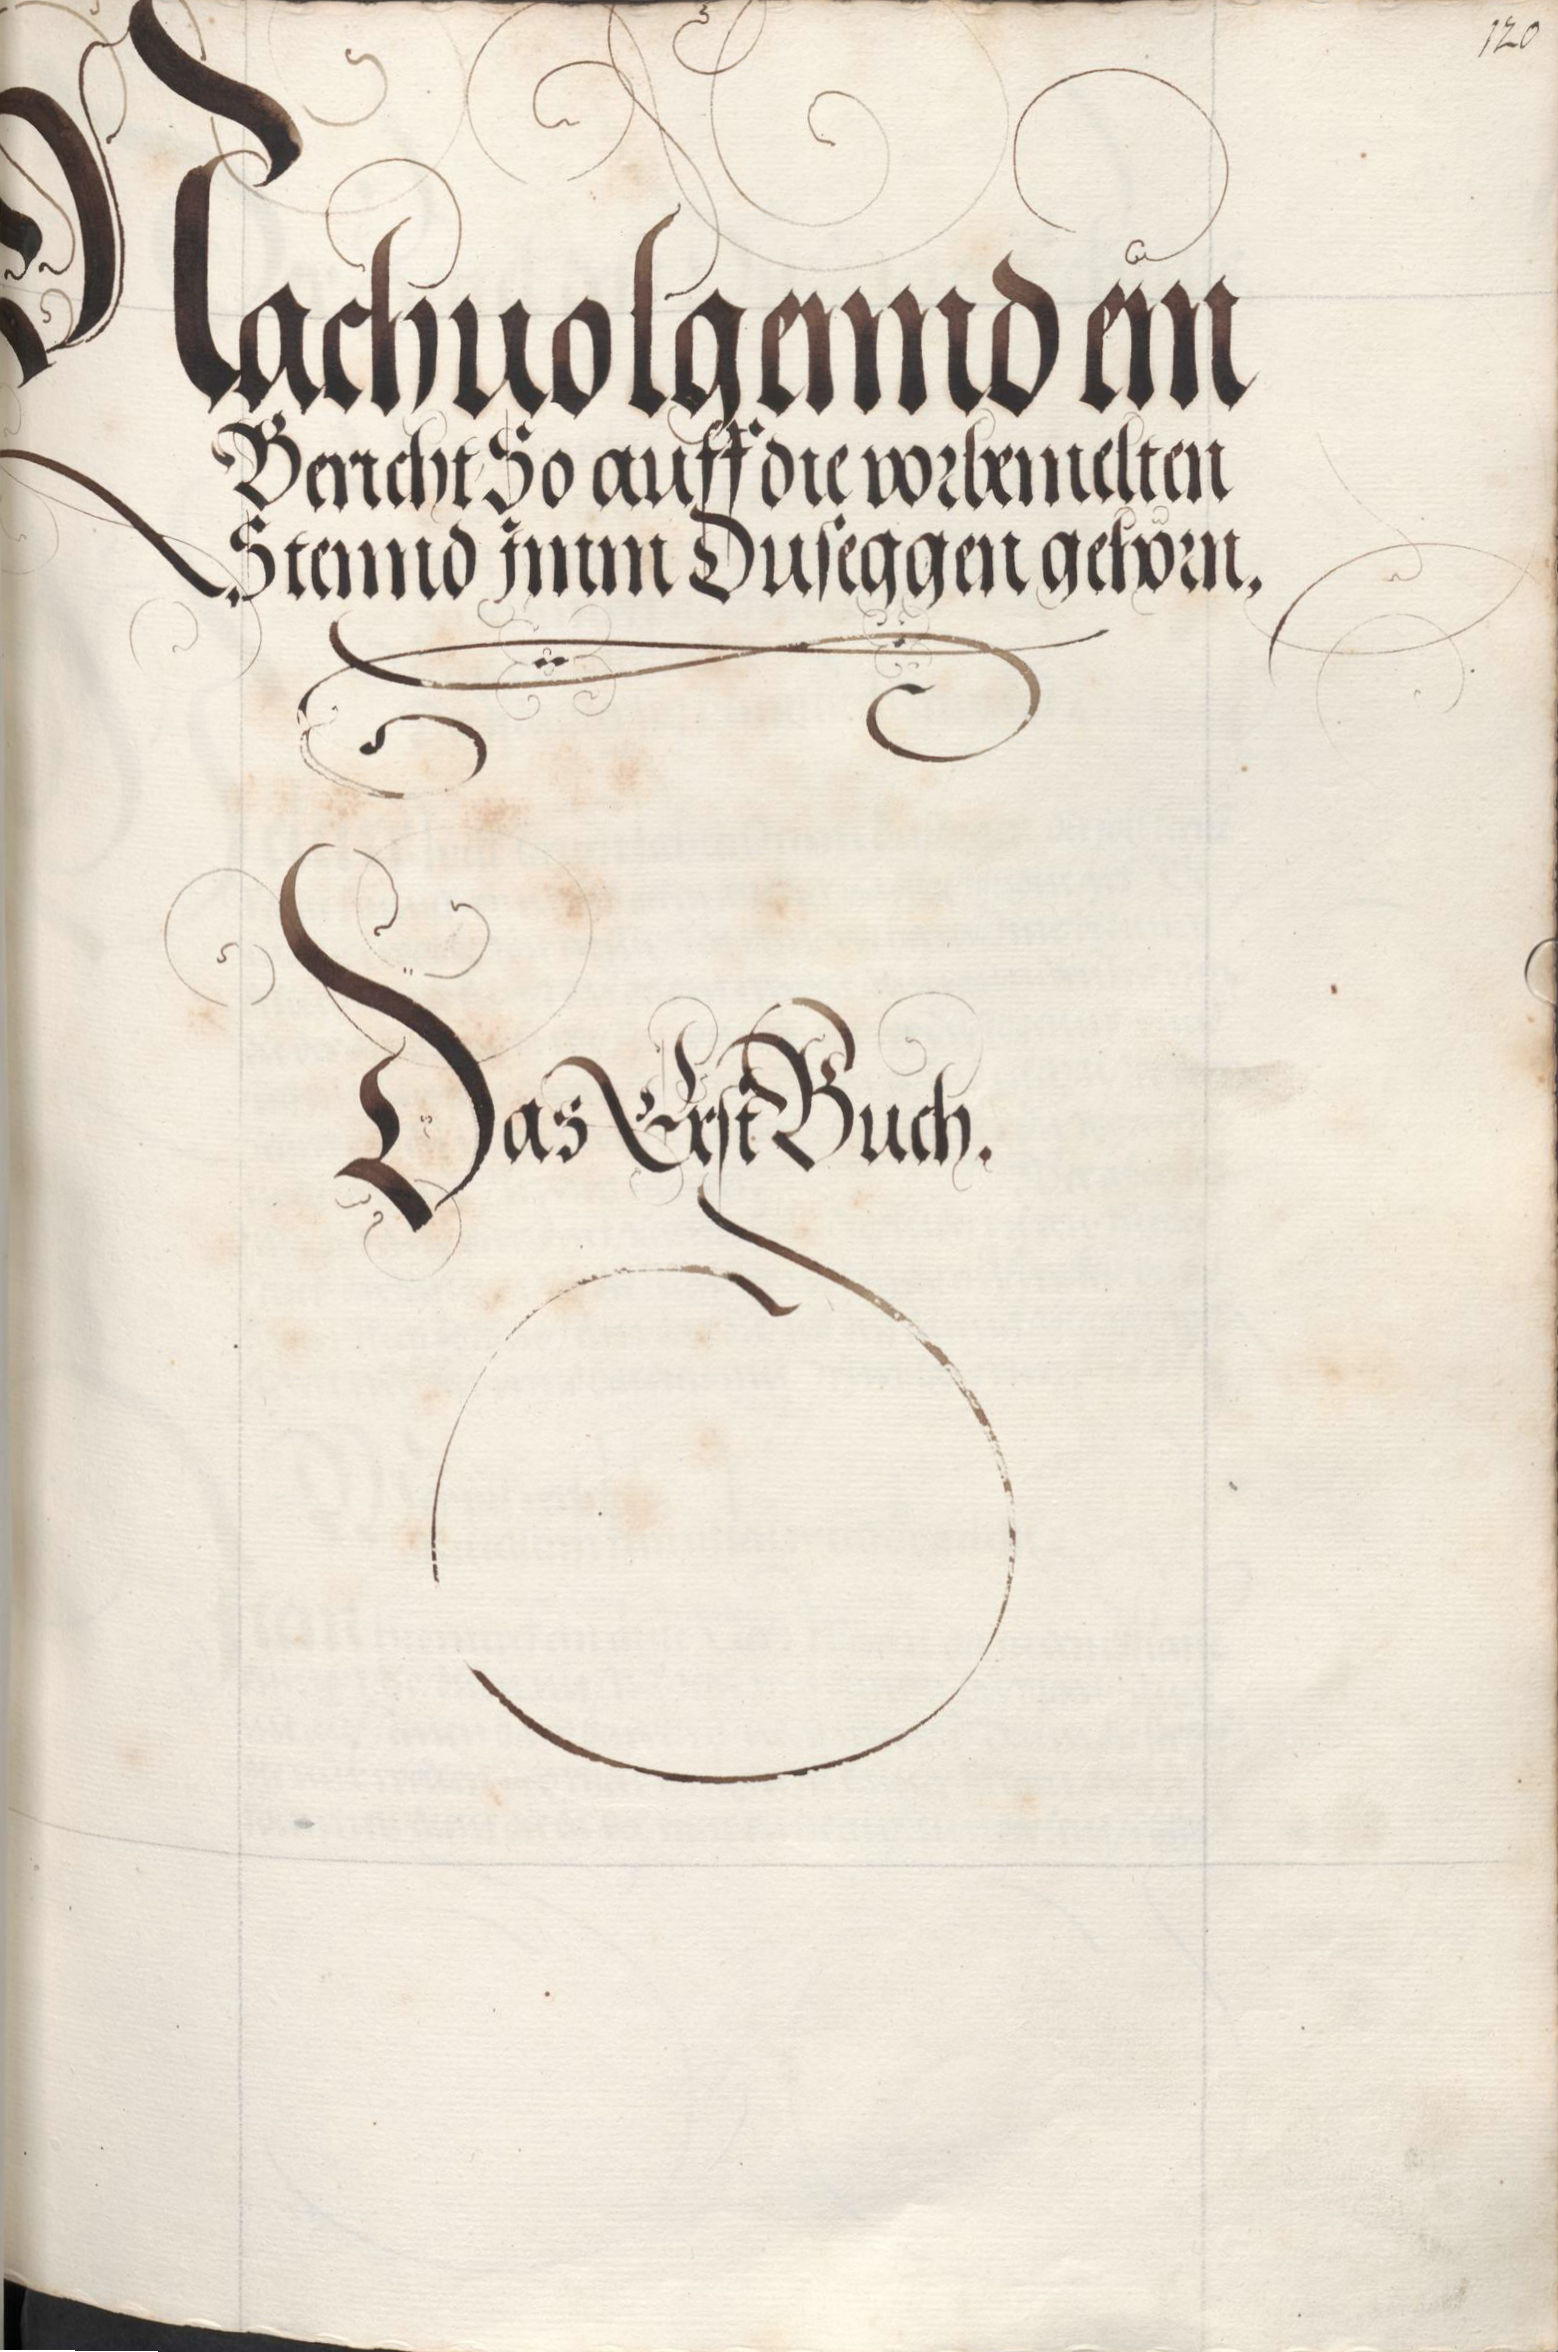 120
Nachuolgennd ein
Bericht So auff die vorbemelten
Stennd jnnn Duseggen gehörn.
Das Erst Buch.